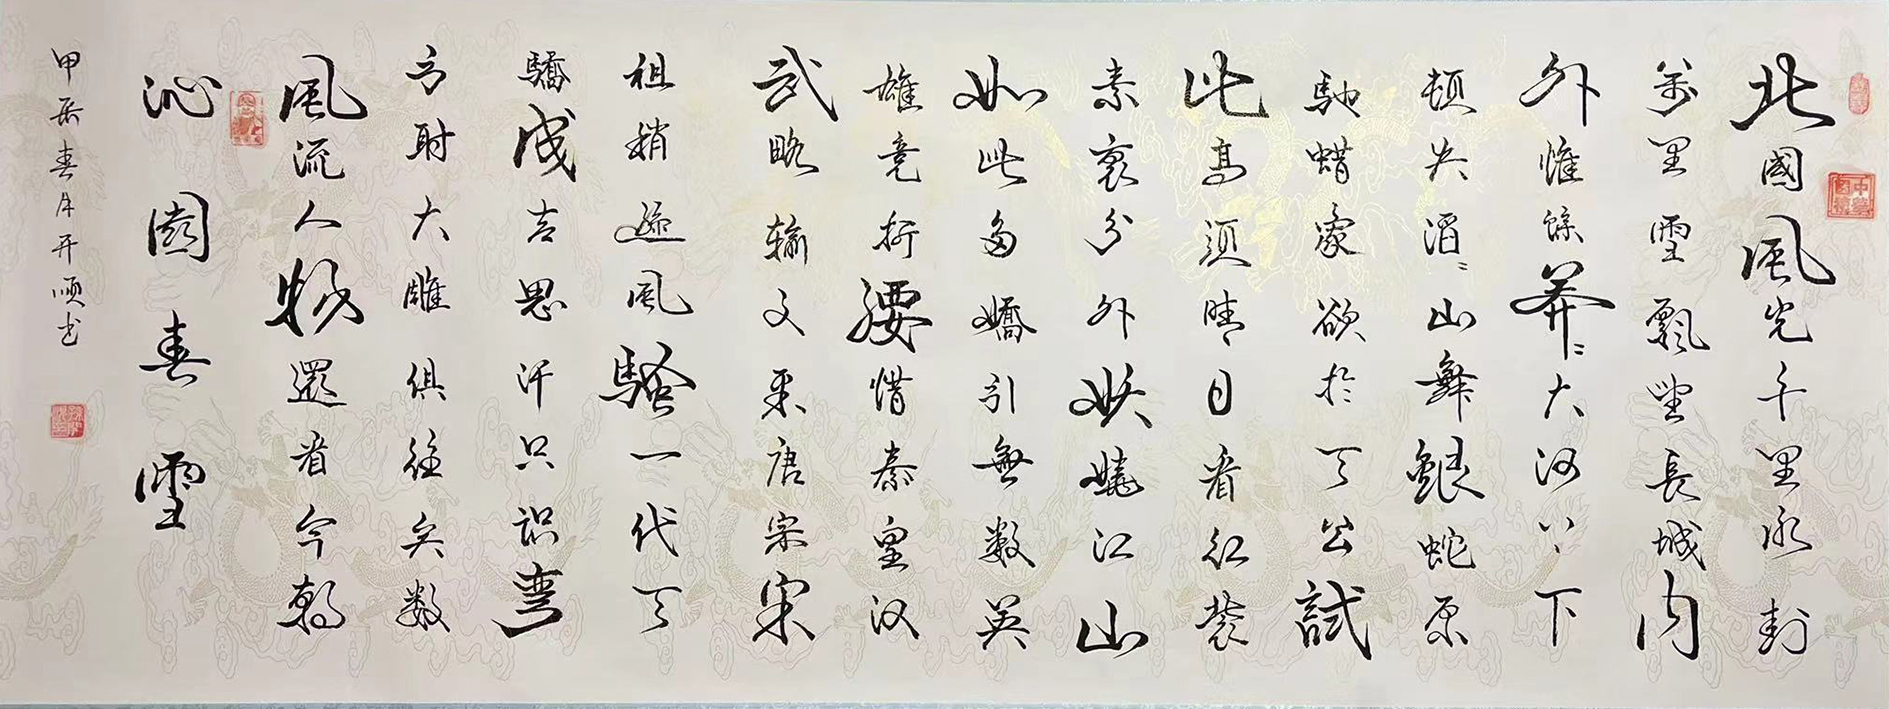 北國風光千里冰封
萬里雪飄望長城内
外惟餘莽々大河上下
頓失滔々山舞銀蛇原
馳蜡象欲於天公試
比高须晴日看红裝
素裹分外妖娆江山
如此多嬌引無数英
雄竞折腰惜秦皇汉
武略输文采唐宗宋
祖稍逊風騷一代天
驕成吉思汗只识彎
弓射大雕俱往矣数
風流人物還看今朝
沁園春雪
甲辰春月开顺书